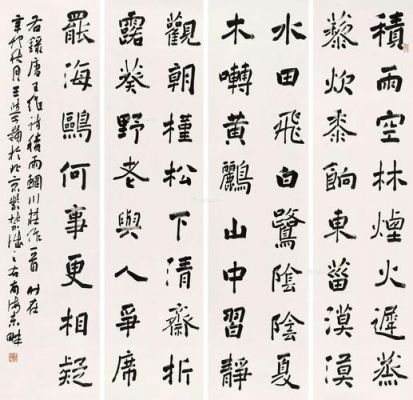 積雨空林煙火遲蒸
藜炊黍餉東菑漠漠
水田飛白鷺陰陰夏
木囀黃鸝山中習靜
觀朝槿松下清齋折
露葵野老與人爭席
罷海鷗何事更相疑
右錄唐王維詩積雨輞川莊作一首 時在
辛卯 月王 於北京紫